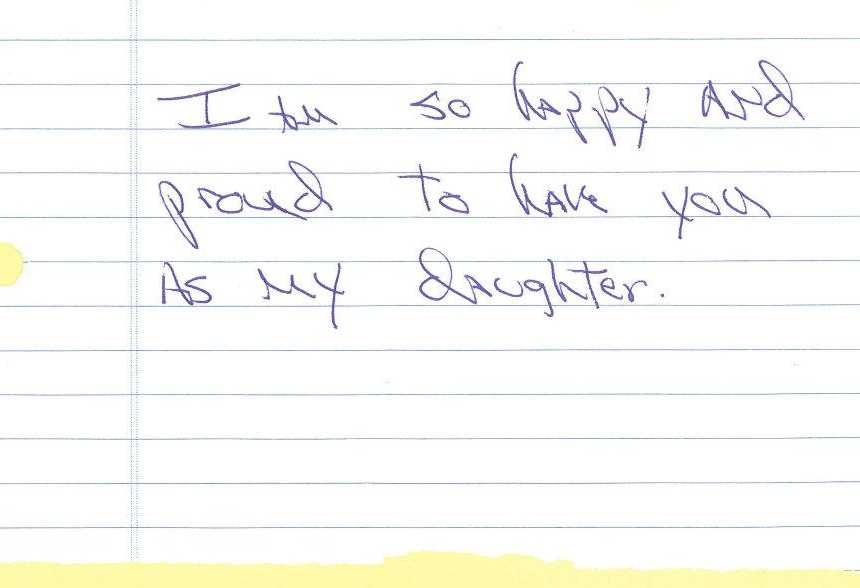 I am so happy AND
proud to have you
As my daughter.